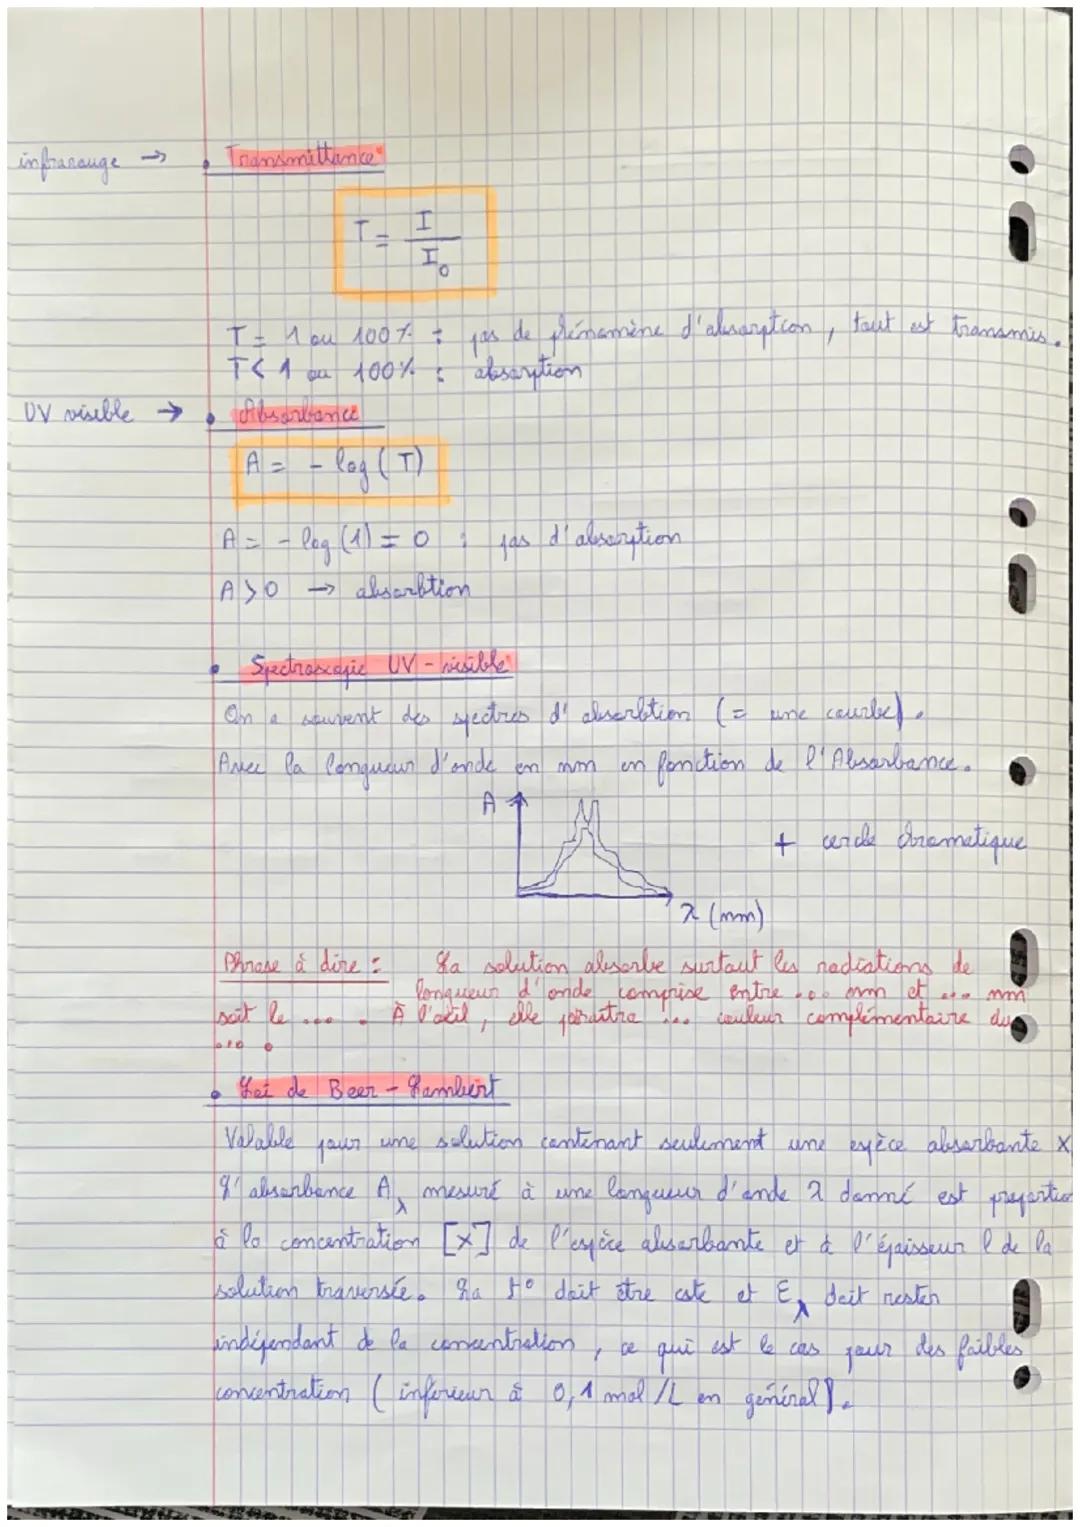 infrarouge → • Transmittance
T = I / I₀
T = 1 ou 100% : pas de phénomène d'absorption, tout est transmis.
T < 1 ou 100% : absorption
UV visible → • Absorbance
A = - log (T)
A = - log (1) = 0 : pas d'absorption
A > 0 → absorbtion
• Spectroscopie UV - visible
On a souvent des spectres d'absorbtion (= une courbe).
Avec la longueur d'onde en nm en fonction de l'Absorbance.
A
+ cercle chromatique
λ (nm)
Phrase à dire : La solution absorbe surtout les radiations de
longueur d'onde comprise entre ... nm et ... nm
soit le ... . À l'œil, elle paraîtra ... couleur complémentaire du
... .
• Loi de Beer - Lambert
Valable pour une solution contenant seulement une espèce absorbante X
L'absorbance Aλ mesuré à une longueur d'onde λ donné est proportion
à la concentration [X] de l'espèce absorbante et à l'épaisseur l de la
solution traversée. La t° doit être cste et Eλ doit rester
indépendant de la concentration, ce qui est le cas pour des faibles
concentration (inférieur à 0,1 mol/L en général).